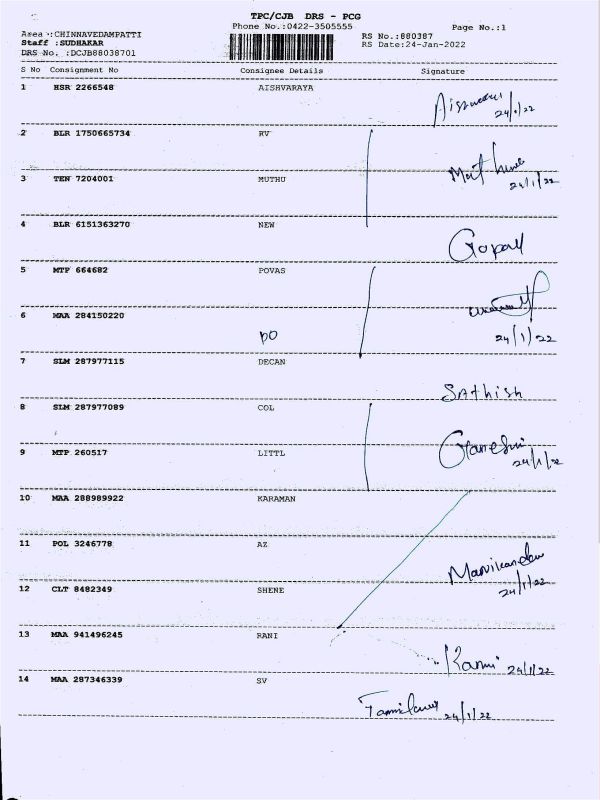 TPC/CJB DRS - PCG
Phone No.:0422-3505555
Page No.:1
Area :CHINNAVEDAMPATTI
RS No.:880387
Staff :SUDHAKAR
RS Date:24-Jan-2022
DRS No. :DCJB88038701
S No Consignment No Consignee Details Signature
1 HSR 2266548 AISHVARAYA
24/1/22
2 BLR 1750665734 RV
24/1/22
3 TEN 7204001 MUTHU
4 BLR 6151363270 NEW
Gopal
5 MTP 664682 POVAS
6 MAA 284150220
DO
24/1/22
7 SLM 287977115 DECAN
Sathish
8 SLM 287977089 COL
Ganesh
24/1/22
9 MTP 260517 LITTL
10 MAA 288989922 KARAMAN
11 POL 3246778 AZ
Manikandan
24/1/22
12 CLT 8482349 SHENE
13 MAA 941496245 RANI
Rani 24/1/22
14 MAA 287346339 SV
24/1/22